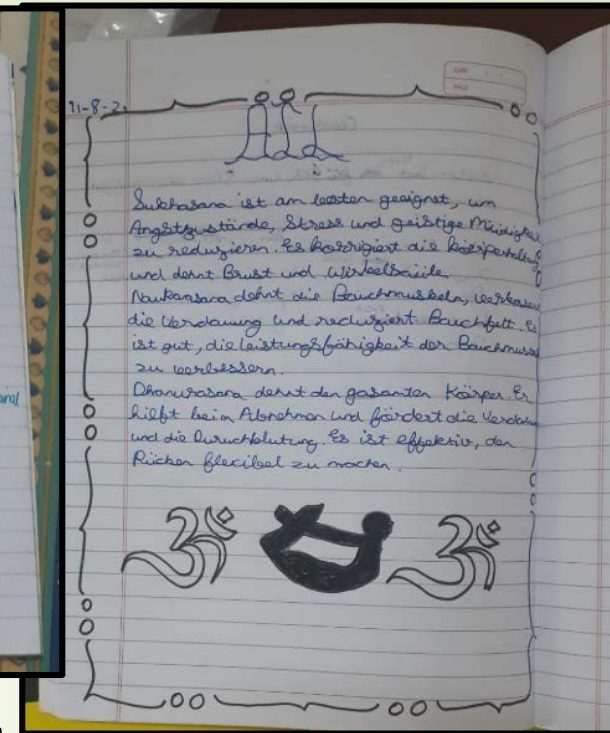 11-8-2
DATE
PAGE
ALL
Sukhasana ist am besten geeignet, um
Angstzustände, Stress und geistige Müdigkei
zu reduzieren. Es korrigiert die körperhaltung
und dehnt Brust und wirbelsäule.
Naukasana dehnt die Bauchmuskeln, verbessert
die Verdauung und reduziert Bauchfett. Es
ist gut, die leistungsfähigkeit der Bauchmusk
zu verbessern.
Dhanurasana dehnt den gesamten Körper. Er
hilft beim Abnehmen und fördert die Verdau
und die Durchblutung. Es ist effektiv, den
Rücken flexibel zu machen.
ॐ ॐ